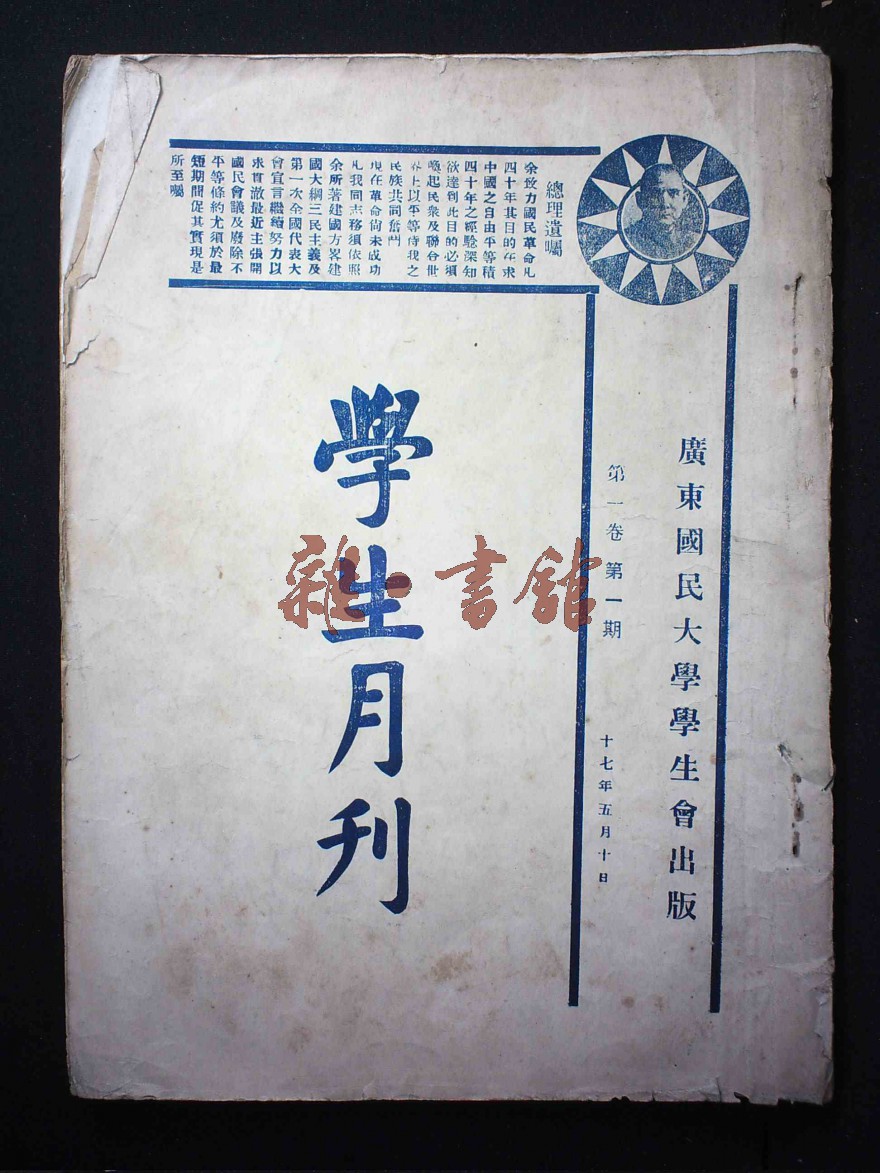 總理遺囑
余致力國民革命凡
四十年其目的在求
中國之自由平等積
四十年之經驗深知
欲達到此目的必須
喚起民衆及聯合世
界上以平等待我之
民族共同奮鬥
現在革命尚未成功
凡我同志務須依照
余所著建國方畧建
國大綱三民主義及
第一次全國代表大
會宣言繼續努力以
求貫澈最近主張開
國民會議及廢除不
平等條約尤須於最
短期間促其實現是
所至囑
廣東國民大學學生會出版
第一卷第一期
十七年五月十日
學生月刊
雜·書館